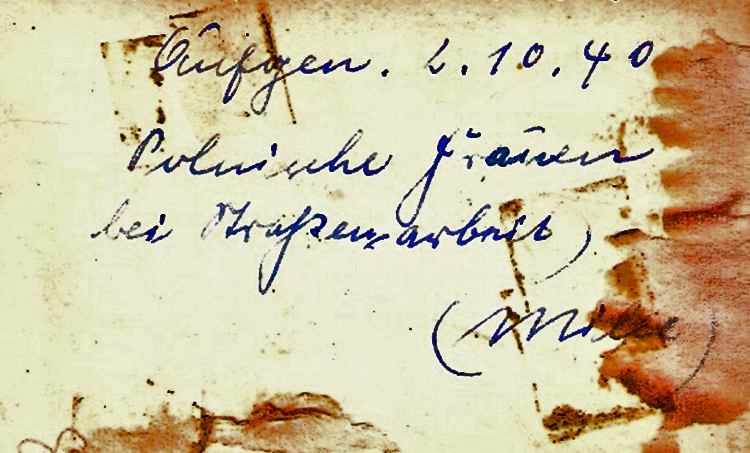 Aufgen. 2.10.40
Polnische Frauen
bei Straßen-arbeit